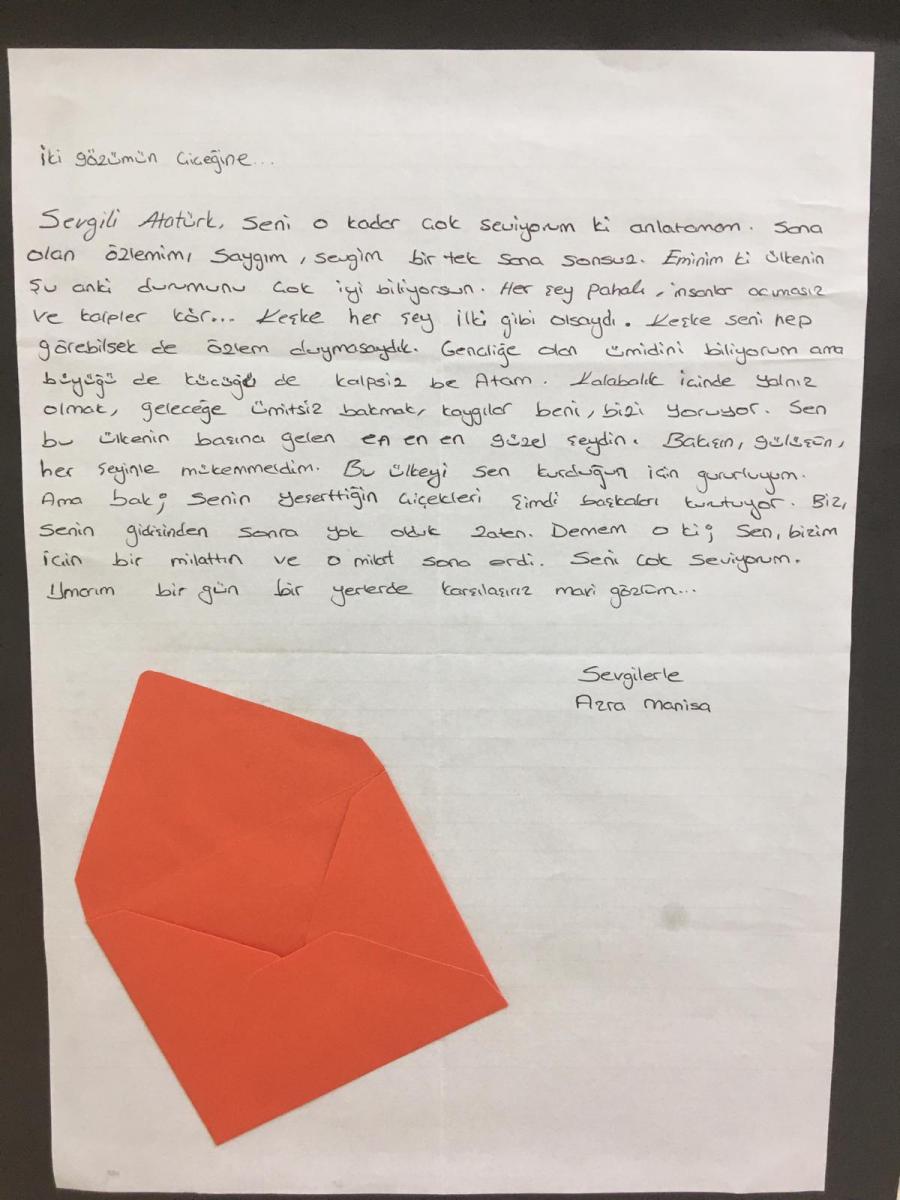 İki gözümün Çiçeğine...
Sevgili Atatürk, Seni o kadar çok seviyorum ki anlatamam. Sana
olan özlemimi, Saygım, sevgim bir tek sana sonsuz. Eminim ki ülkenin
Şu anki durumunu çok iyi biliyorsun. Her şey pahalı, insanlar acımasız
ve kalpler kör... Keşke her şey ilki gibi olsaydı. Keşke seni hep
görebilsek de özlem duymasaydık. Gençliğe olan ümidini biliyorum ama
büyüğü de küçüğü de kalpsiz be Atam. Kalabalık içinde yalnız
olmak, geleceğe ümitsiz bakmak, kaygılar beni, bizi yoruyor. Sen
bu ülkenin başına gelen en en en güzel şeydin. Bakışın, gülüşün,
her şeyinle mükemmeldim. Bu ülkeyi sen kurduğun için gururluyum.
Ama bak; Senin yeşerttiğin çiçekleri şimdi başkaları kurutuyor. Biz,
Senin gidişinden sonra yok olduk zaten. Demem o ki; Sen, bizim
için bir milattın ve o milat sona erdi. Seni çok Seviyorum.
Umarım bir gün bir yerlerde karşılaşırız mavi gözlüm...
Sevgilerle
Azra Manisa